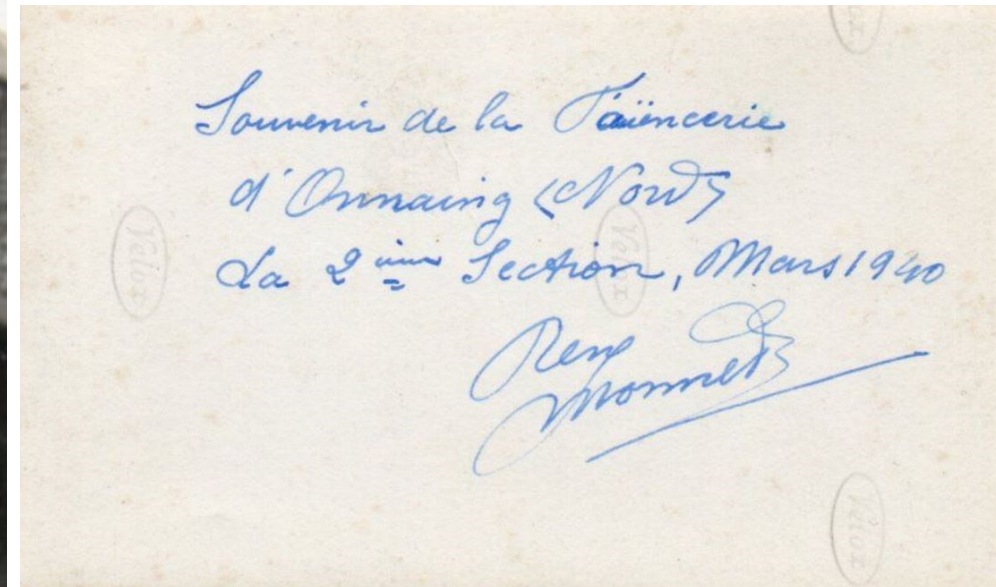 Souvenir de la Faïencerie
d'Onnaing (Nord)
La 2ème Section, Mars 1940
René
Monnet
Velox
Velox
Velox